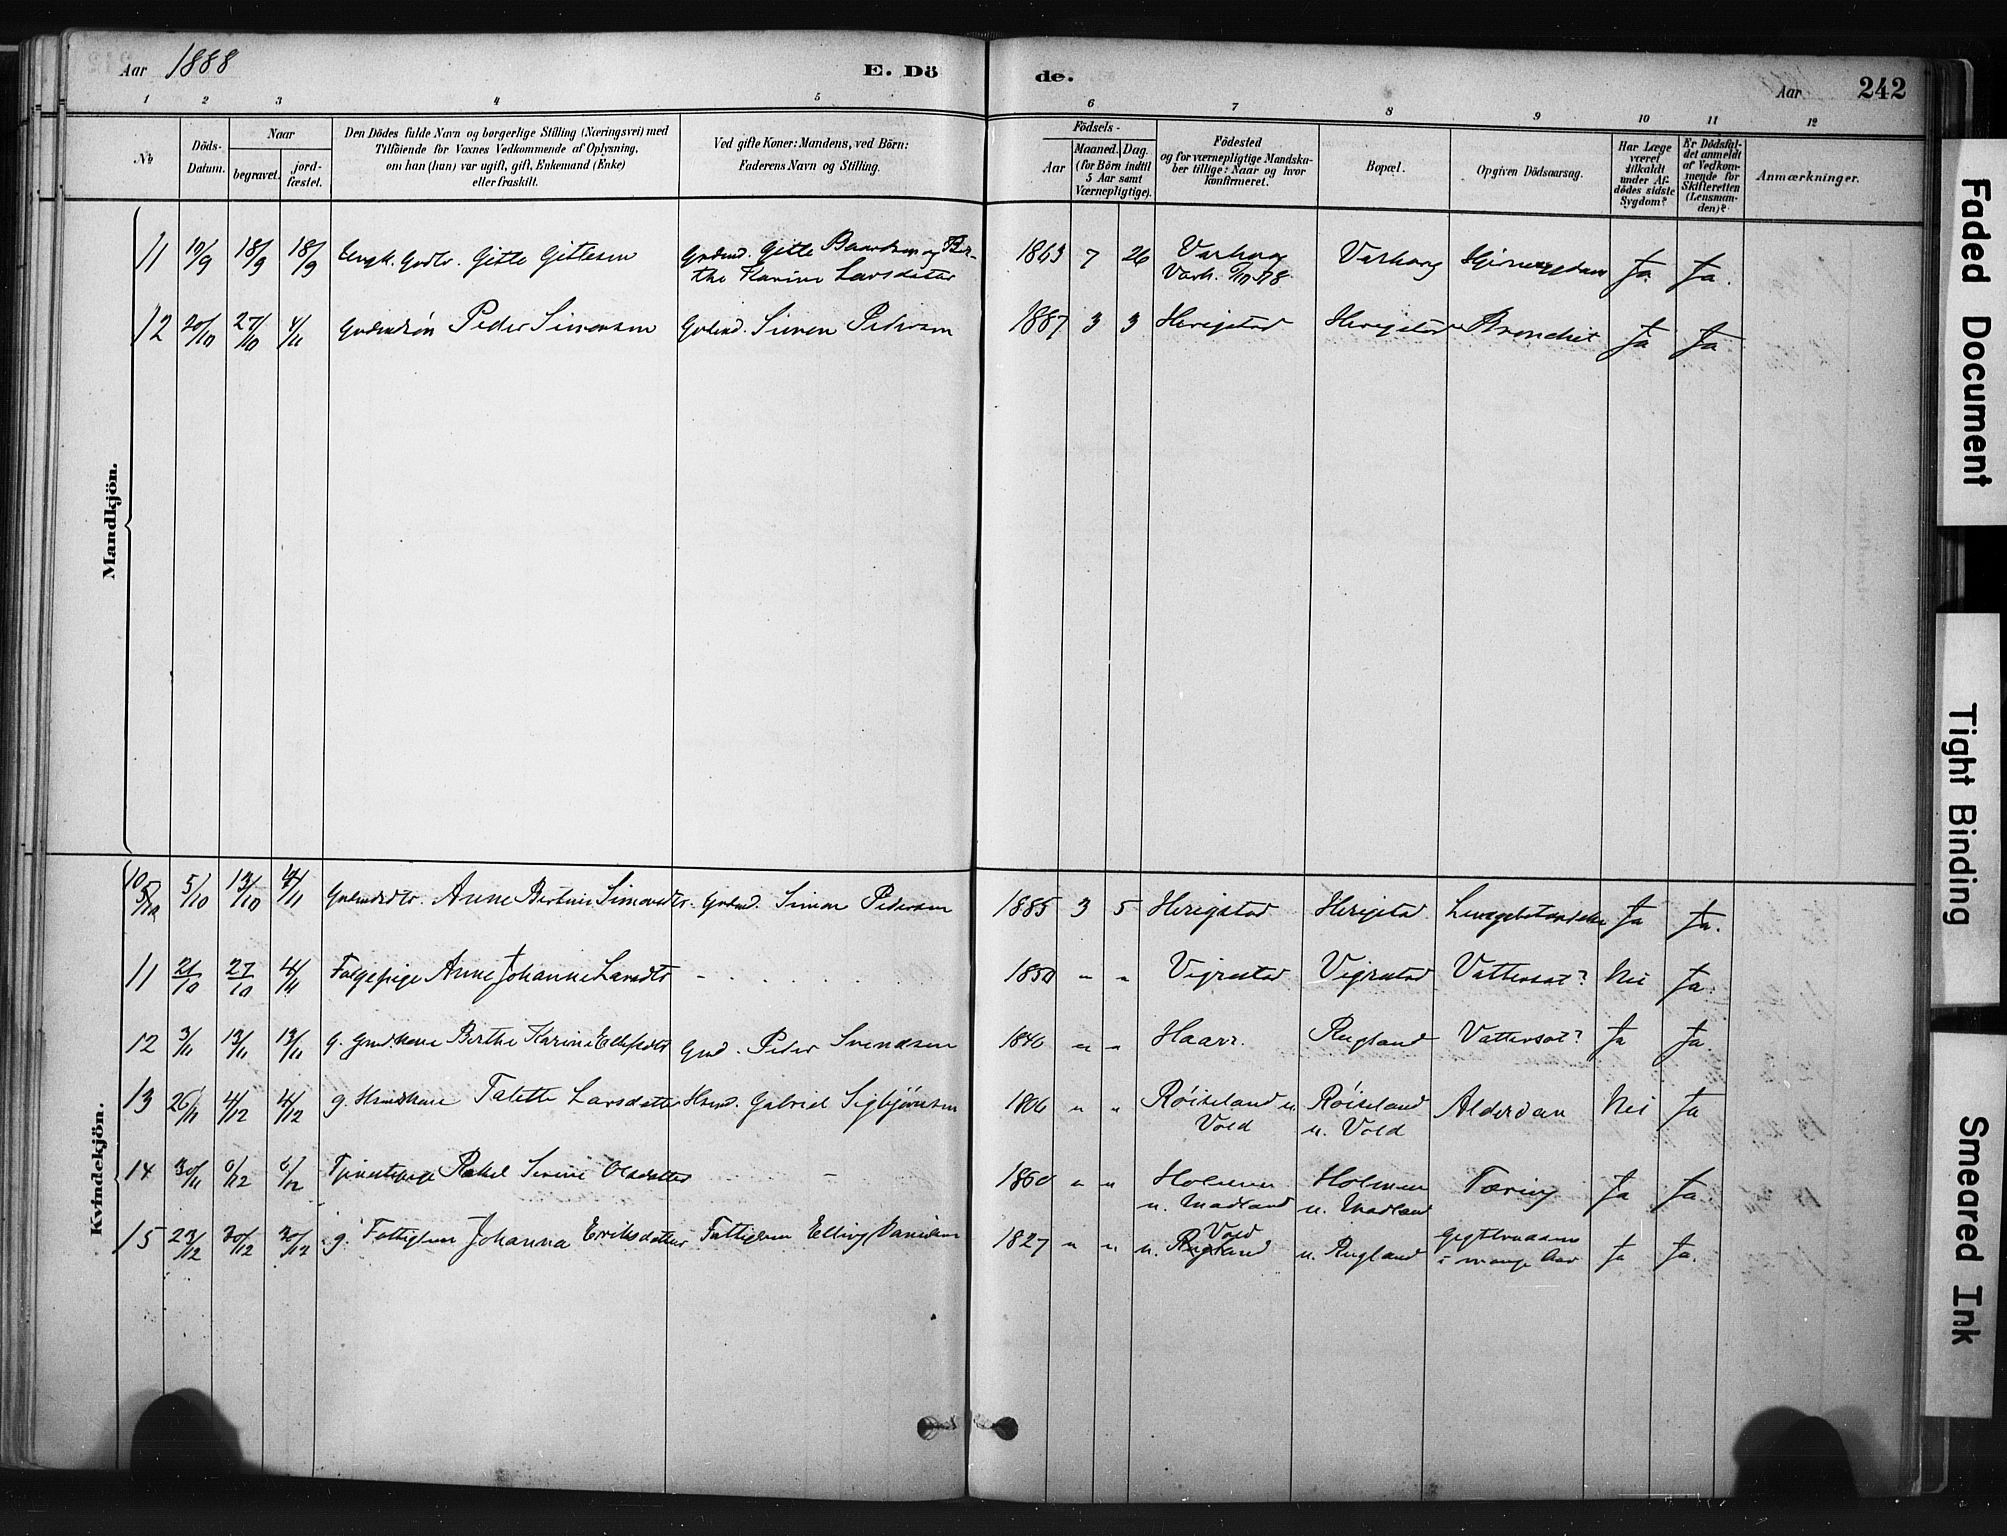 Aar 1888
E. Dö
de.
Aar
242
1 2 3 4 5 6 7 8 9 10 11 12
No
Döds-
Datum.
Naar
begravet.
jord-
fæstet.
Den Dödes fulde Navn og borgerlige Stilling (Næringsvei) med
Tilföiende for Voxnes Vedkommende af Oplysning,
om han (hun) var ugift, gift, Enkemand (Enke)
eller fraskilt.
Ved gifte Koner: Mandens, ved Börn:
Faderens Navn og Stilling.
Födsels-
Aar
Maaned. Dag.
(for Börn indtil
5 Aar samt
Værnepligtige).
Födested
og for værnepligtige Mandska-
ber tillige: Naar og hvor
konfirmeret.
Bopæl.
Opgiven Dödsaarsag.
Har Læge
været
tilkaldt
under Af-
dödes sidste
Sygdom?
Er Dödsfal-
det anmeldt
af Vedkom-
mende for
Skifteretten
(Lensman-
den)?
Anmærkninger.
Mandkjön.
11 10/9 18/9 18/9 Ungk. Gitle Gitlesen Gitle Baardsen og Ber- 1863 7 26 Varhoug Varhoug Ja Ja.
the Karine Larsdatter Varh.
12 20/10 27/10 4/11 Peder Simonsen Simon Pedersen 1887 3 3 Herigstad Herigstad Bronchit Ja Ja
Kvindekjön.
10 5/10 5/10 13/10 4/11 Anne Bertine Simonsdtr. Simon Pedersen 1885 3 5 Herigstad Herigstad Ja Ja.
11 21/10 27/10 4/11 Anne Johanne Larsdtr - 1850 " " Vigrestad Vigrestad Vattersot? Nei Ja.
12 3/11 13/11 13/11 g. Berthe Karine Gmd. Peder Svendsen 1840 " " Haarr. Rugland Vattersot? Ja Ja.
13 26/11 4/12 4/12 g. Talette Larsdatter Gabriel Sigbjörnsen 1806 " " Röiseland u. Röiseland Alderdom Nei Ja
Vold u. Vold
14 30/11 6/12 6/12 Tjenestepige Rakel Serine Olsdatter - 1860 " " Holmen Holmen Tæring Ja Ja.
u. Madland u. Madland
15 23/12 30/12 30/12 g. Fattiglem Johanna Eriksdatter Fattiglem Elling Danielsen 1827 " " Vold
u. Rugland u. Rugland Ja Ja.
i mange Aar
Faded Document
Tight Binding
Smeared Ink